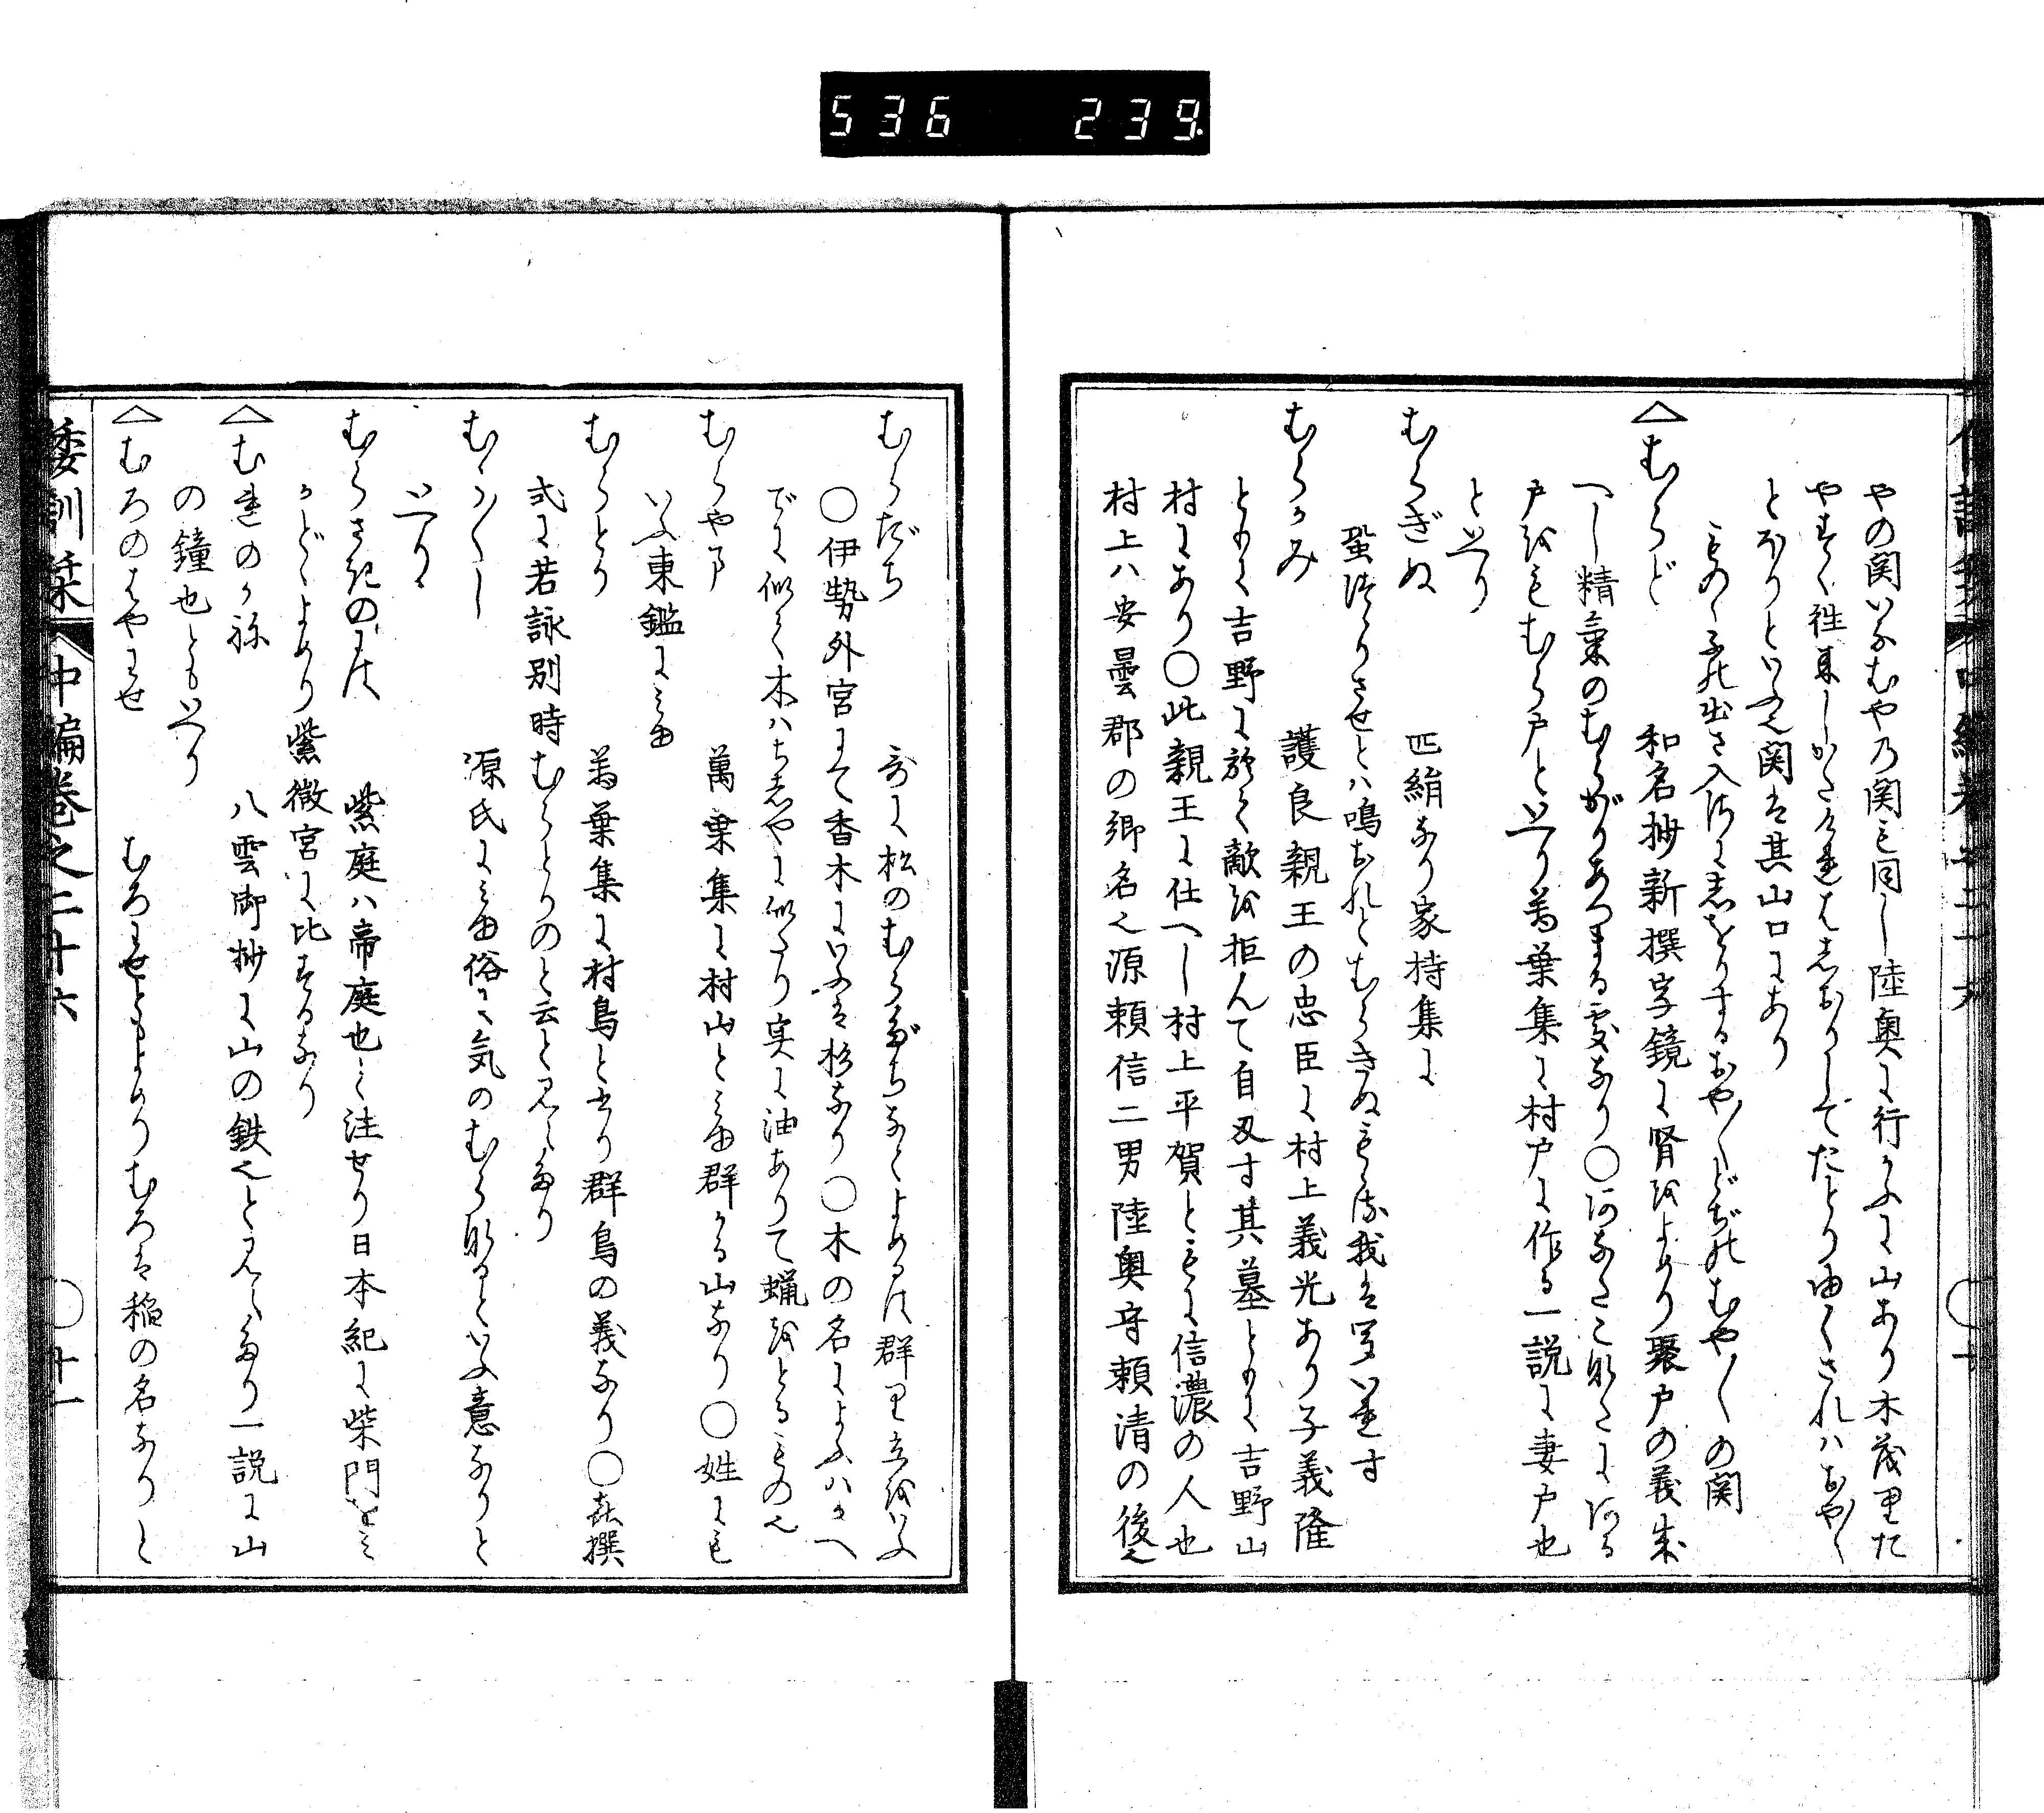 536 239
やの関いなむやの関も同し陸奥に行かふに山あり木茂里た
やすく往来しかたけれはしおりしてたとりゆくされハおや〳〵
とほりといへ関は其山口にあり
ものゝふの出さ入さにしをりするおや〳〵どぢのむや〳〵の関
△むらど 和名抄新撰字鏡に腎をよめり聚戸の義成
へし精氣のむらがりあつまる処なり〇
戸をもむら戸といへり萬葉集に村戸に作る一説に妻戸也
といへり
むらぎぬ 匹絹なり家持集に
蛩つゝりさせとハ鳴おれとむらきぬもる我は
むらかみ 護良親王の忠臣に村上義光あり子義隆
ともに吉野に於て敵を拒んて自刃す其墓ともに吉野山
村にあり〇此親王に仕へし村上平賀ともに信濃の人也
村上ハ安曇郡の郷名也源頼信二男陸奥守頼清の後也
倭訓栞 中編巻之二十六 〇十一
むらだち 哥に松のむらだちなとよめるは群里立をいふ
〇伊勢外宮にて香木にいふは杉なり〇木の名によふハかへ
でに似て木ハちしやに似たり実に油ありて蝋をとるもの也
むらやま 萬葉集に村山とみゆ群かる山なり〇姓にも
いふ東鑑にみゆ
むらとり 萬葉集に村鳥と書り群鳥の義なり〇喜撰
式に若詠別時むらとりのと云と見えたり
むら〳〵し 源氏にみゆ俗に気のむらなるといふ意なりと
いへり
むらさきのには 紫庭ハ帝庭也と注せり日本紀に柴門をみ
かどゝよめり紫微宮に比するなり
△むれのかね 八雲御抄に山の鉄也と見えたり一説に山
の鐘也ともいへり
△むろのはやわせ むろわせともよめりむろは稲の名なりと